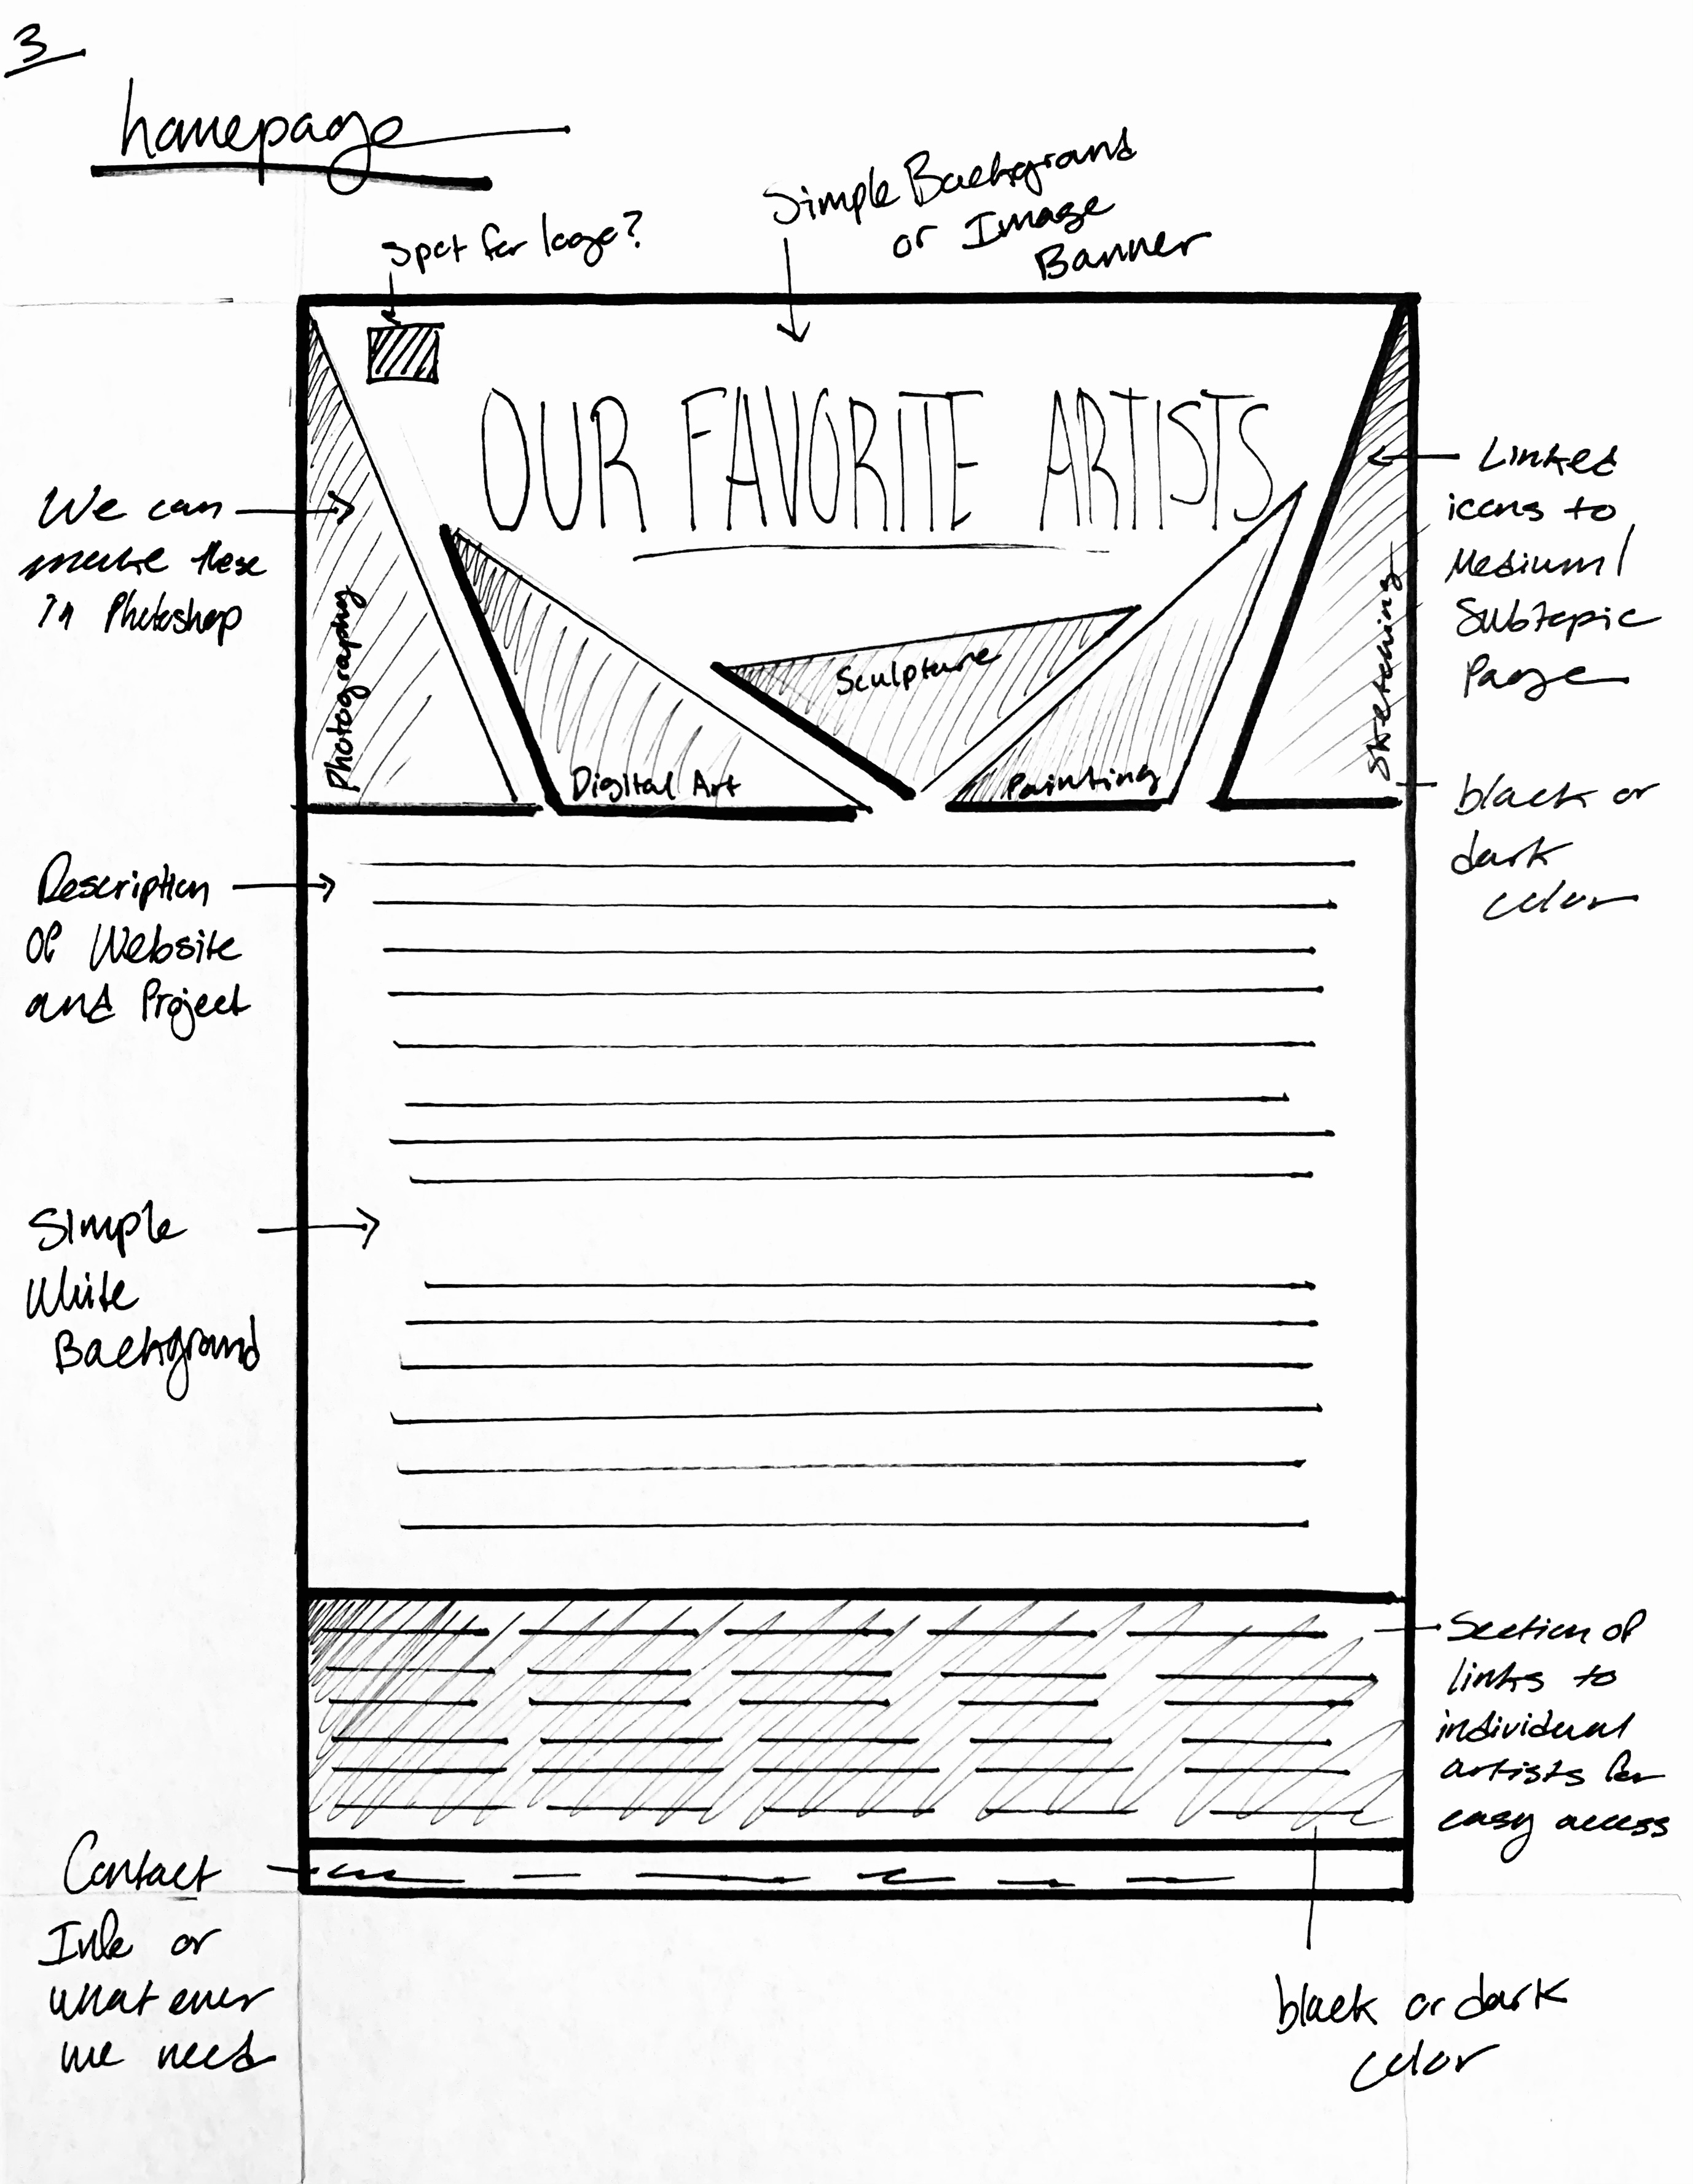 3
homepage
Spot for logo?
Simple Background
or Image
Banner
OUR FAVORITE ARTISTS
We can
make these
in Photoshop
Photography
Digital Art
Sculpture
Painting
Sketching
Linked
icons to
Medium/
Subtopic
Page
black or
dark
color
Description
of Website
and Project
Simple
White
Background
Section of
links to
individual
artists for
easy access
Contact
Info or
what ever
we need
black or dark
color